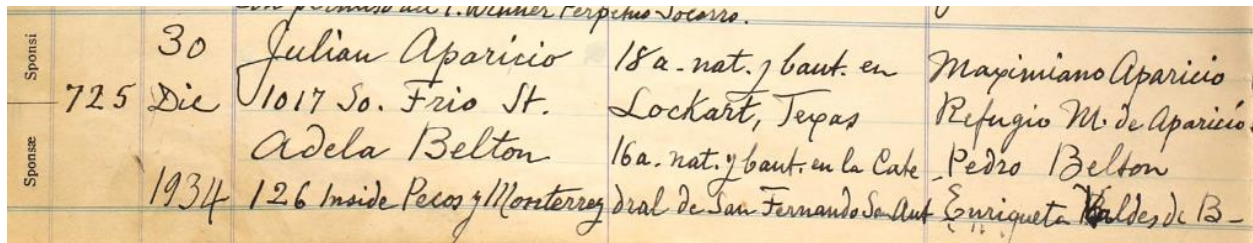 con permiso del P. Wenner Perpetuo Socorro.
Sponsi
Sponsæ
725
30
Dic
1934
Julian Aparicio
1017 So. Frio St.
Adela Belton
126 Inside Pecos y Monterrey
18 a. nat. y baut. en
Lockart, Texas
16 a. nat. y baut. en la Cate
dral de San Fernando San Ant
Maximiano Aparicio
Refugio M. de Aparicio.
Pedro Belton
Enriqueta Valdes de B-